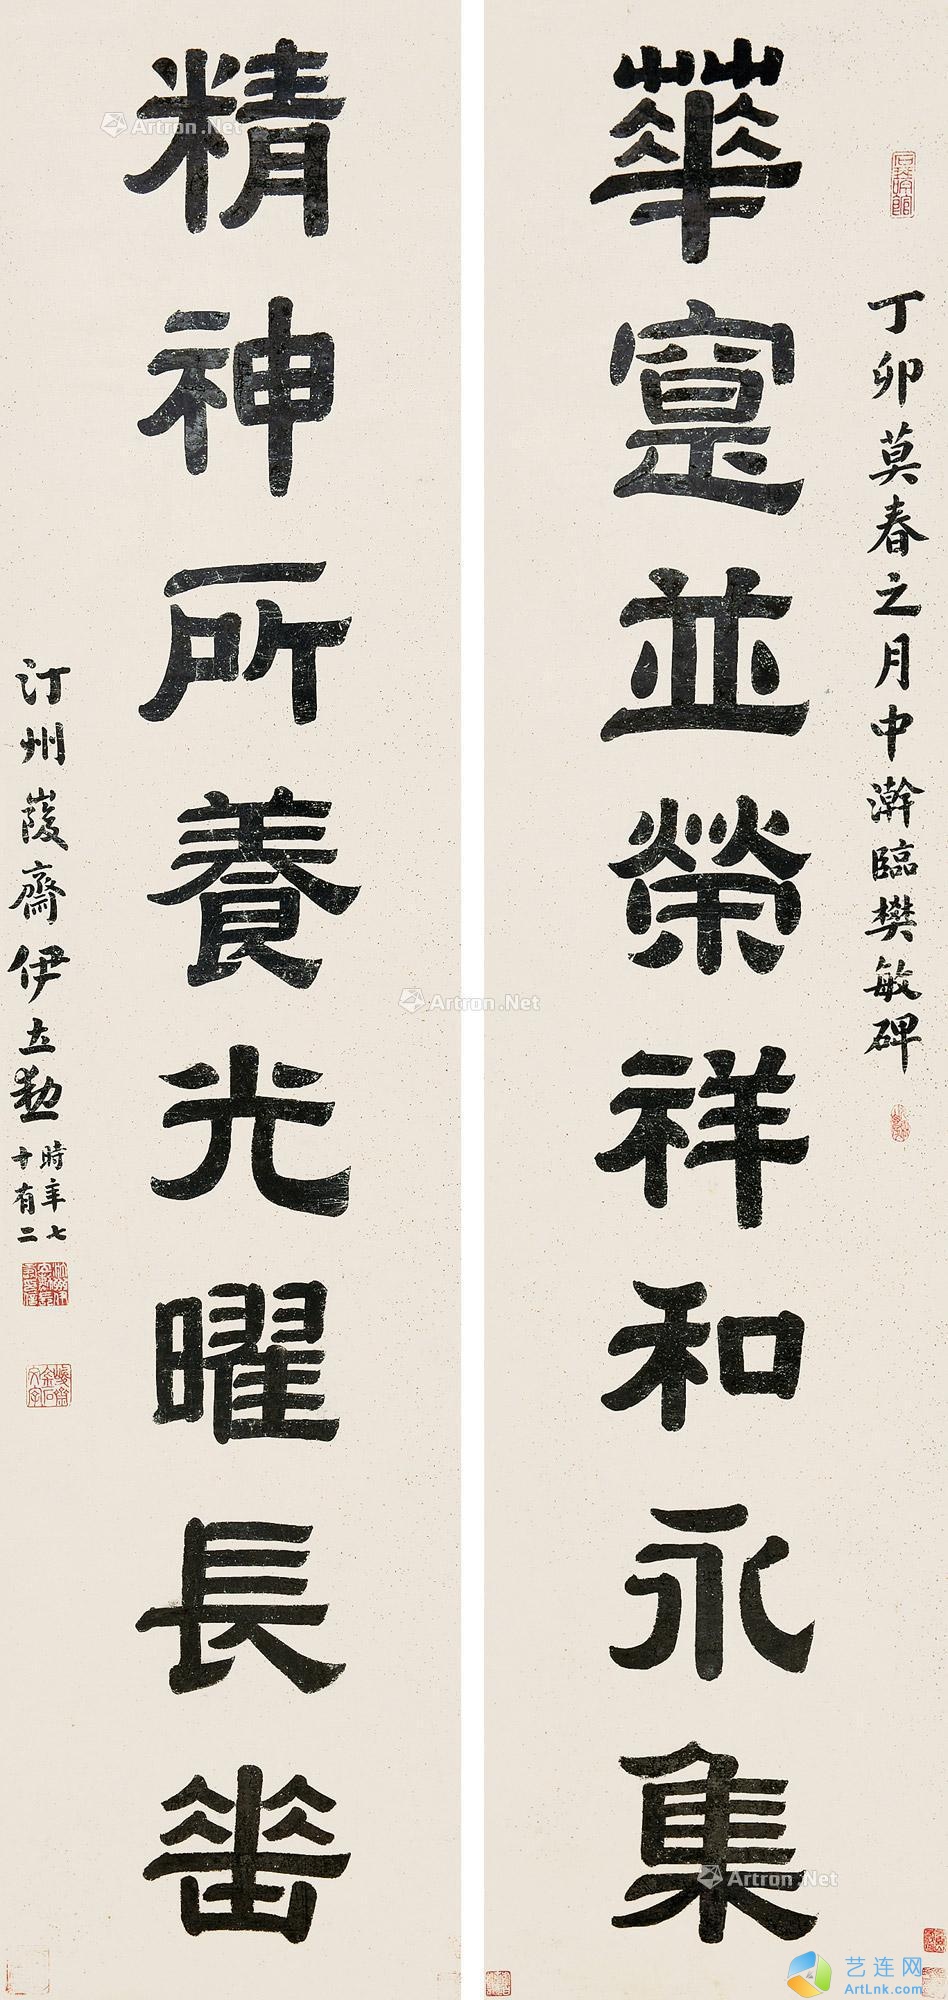 丁卯莫春之月中澣臨樊敏碑
華寔並榮祥和永集
精神所養光曜長垂
汀州峻齋伊立勳
時年七
十有二
Artron.Net
Artron.Net
Artron.Net
艺连网
ArtLnk.com